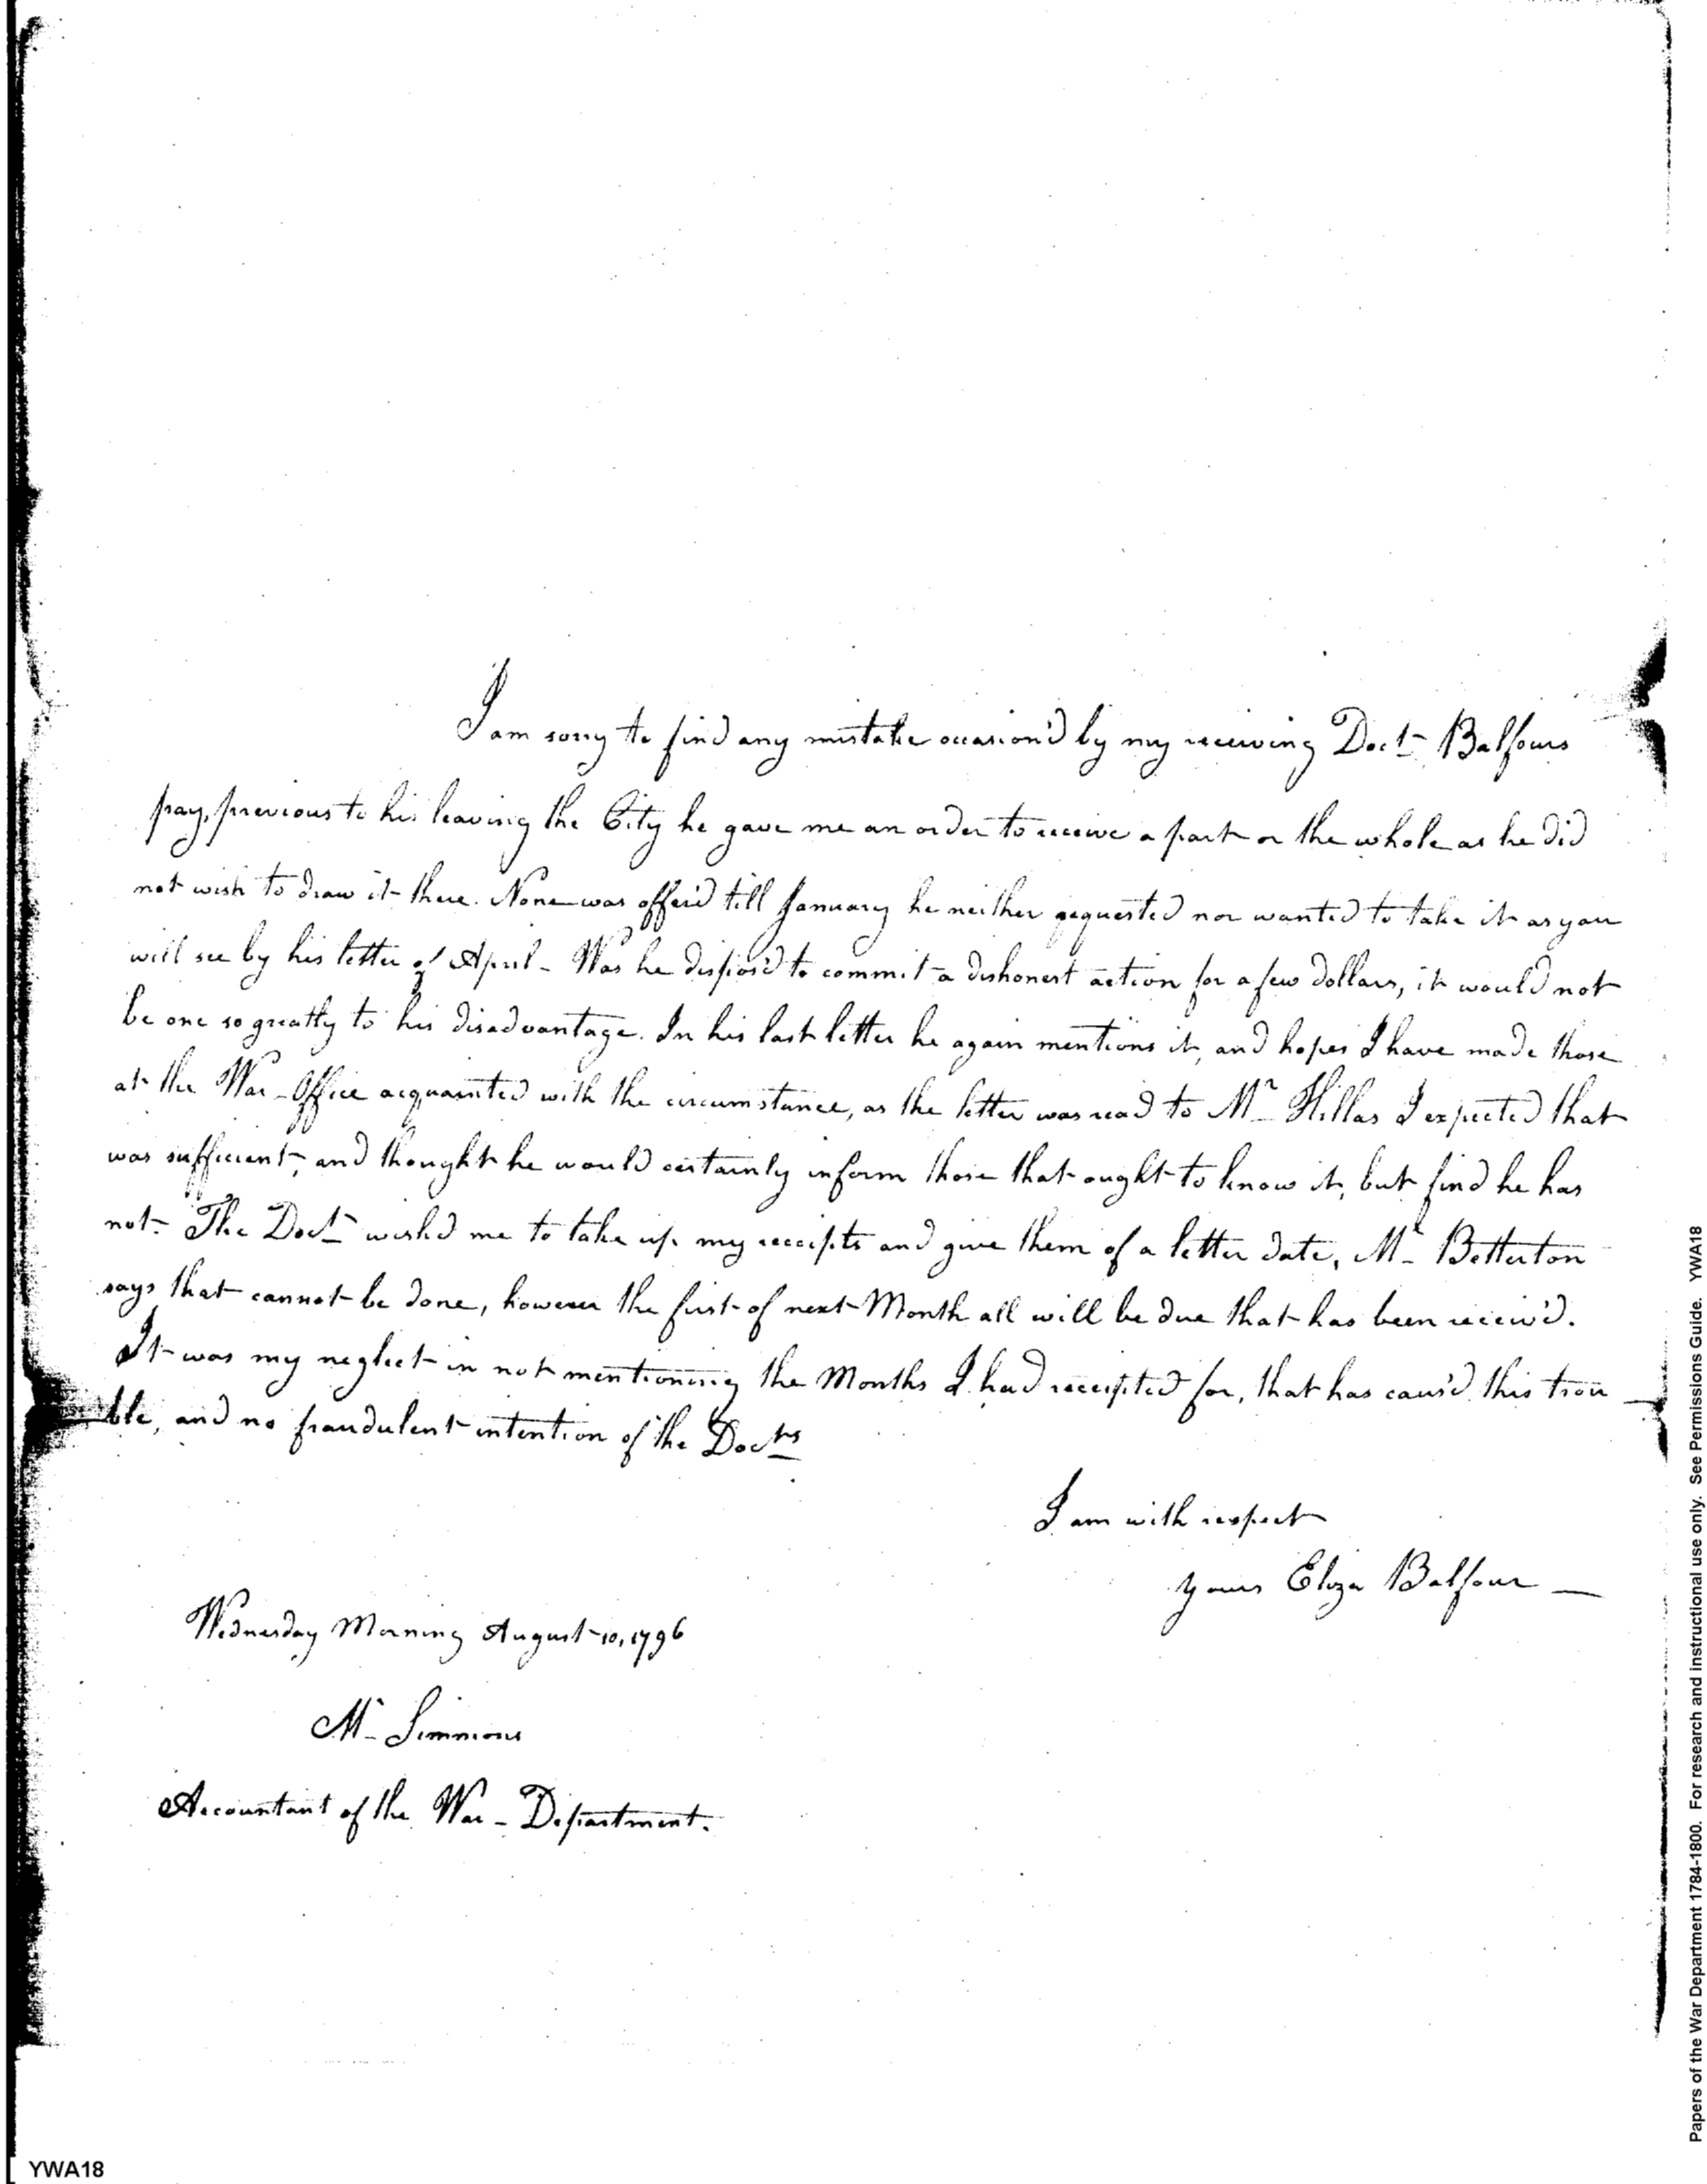 I am sorry to find any mistake occasion'd by my receiving Doctr Balfours
pay, previous to his leaving the City he gave me an order to receive a part or the whole as he did
not wish to draw it there. None was offer'd till January he neither requested nor wanted to take it as you
will see by his letter of April - Was he dispos'd to commit a dishonest action for a few dollars, it would not
be one so greatly to his disadvantage. In his last letter he again mentions it, and hopes I have made those
at the War-Office acquainted with the circumstance, as the letter was read to Mr Hillas I expected that
was sufficient, and thought he would certainly inform those that ought to know it, but find he has
not- The Doctr wish'd me to take up my receipts and give them of a letter date, Mr Betterton
says that cannot be done, however the first of next Month all will be due that has been receiv'd.
It was my neglect in not mentioning the Months I had receipted for, that has caus'd this trou
ble, and no fraudulent intention of the Doctrs
I am with respect
yours Eliza Balfour —
Wednesday Morning August 10, 1796
Mr Simmons
Accountant of the War-Department.
Papers of the War Department 1784-1800. For research and instructional use only. See Permissions Guide. YWA18
YWA18